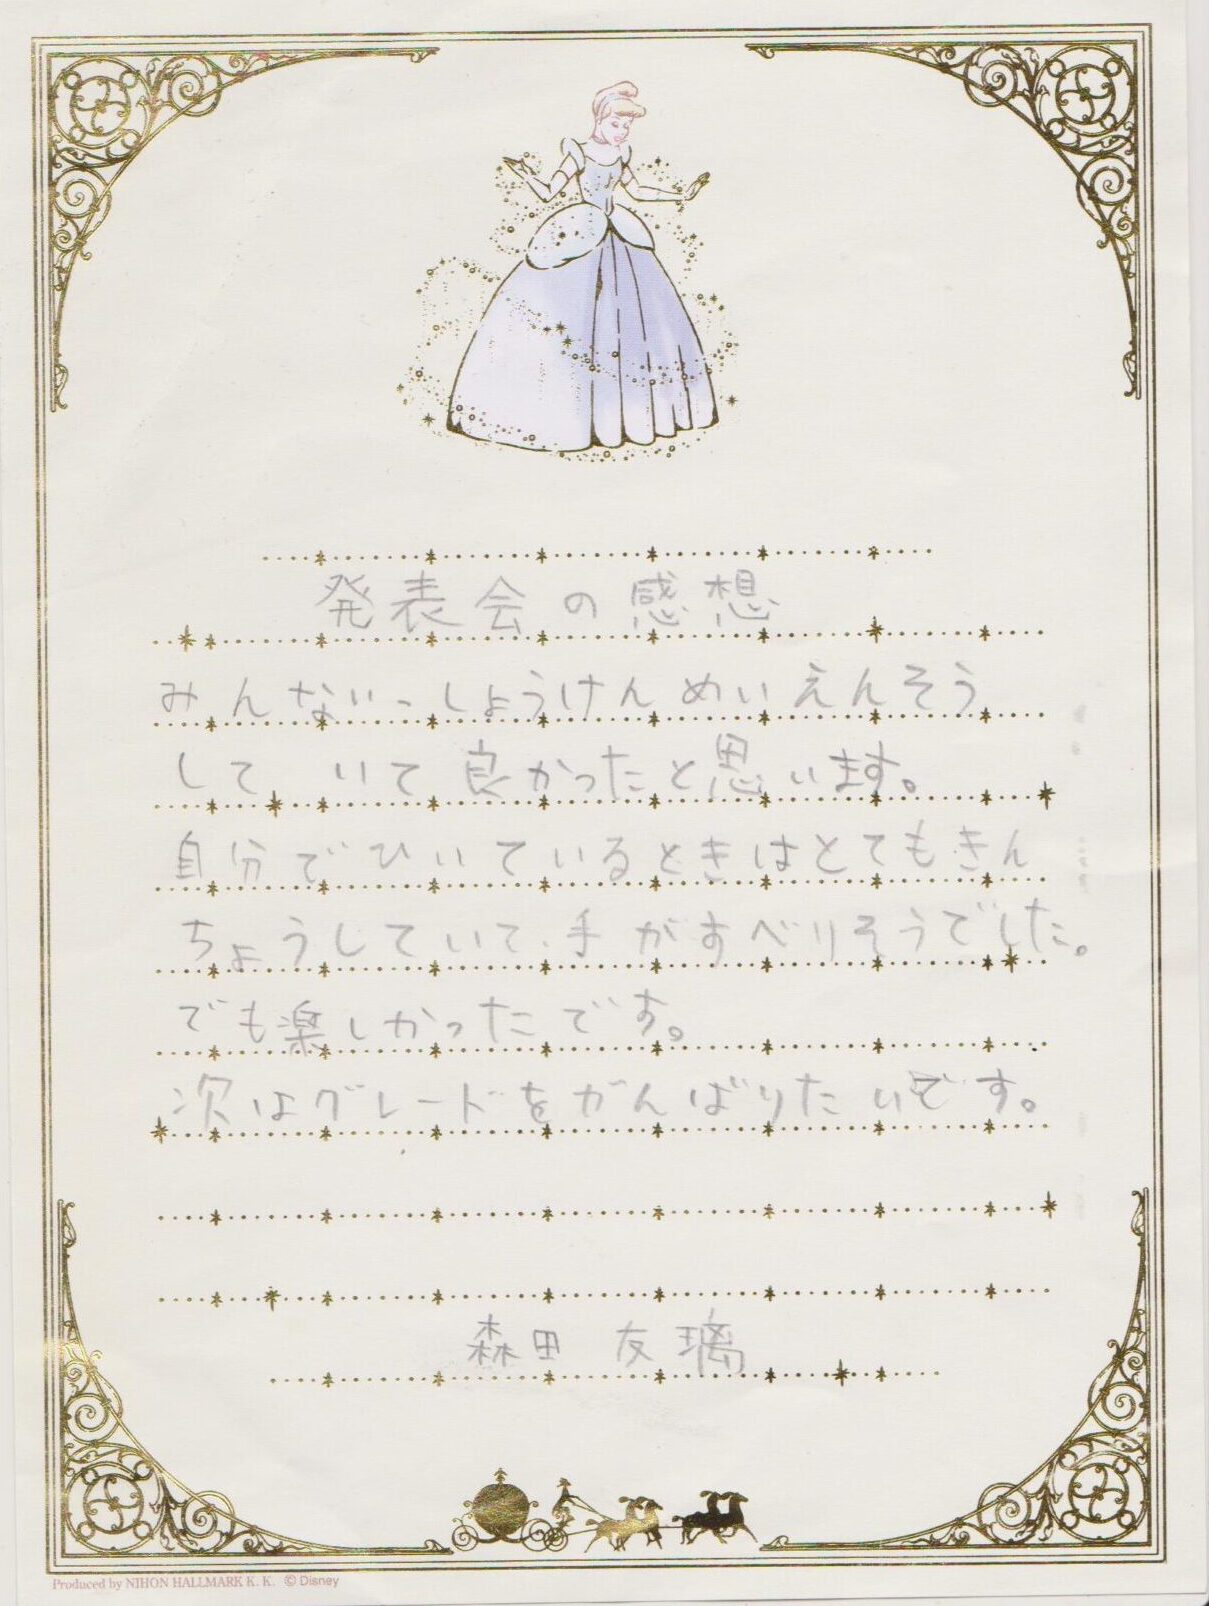 発表会の感想
みんないっしょうけんめいえんそう
して いて良かったと思います。
自分でひいているときはとてもきん
ちょうしていて、手がすべりそうでした。
でも楽しかったです。
次はグレードをがんばりたいです。
森田 友璃
Produced by NIHON HALLMARK K. K. © Disney